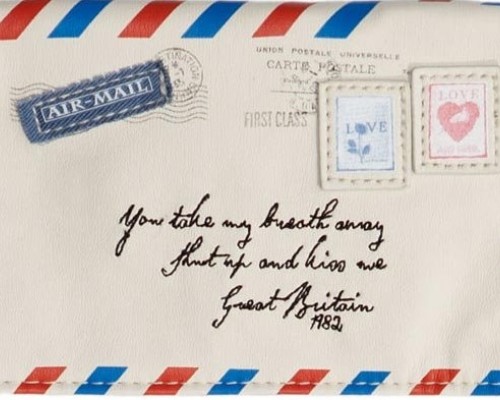 UNION POSTALE UNIVERSELLE
CARTE POSTALE
AIR-MAIL
FIRST CLASS
LOVE
LOVE
You take my breath away
Shut up and kiss me
Great Britain
1982